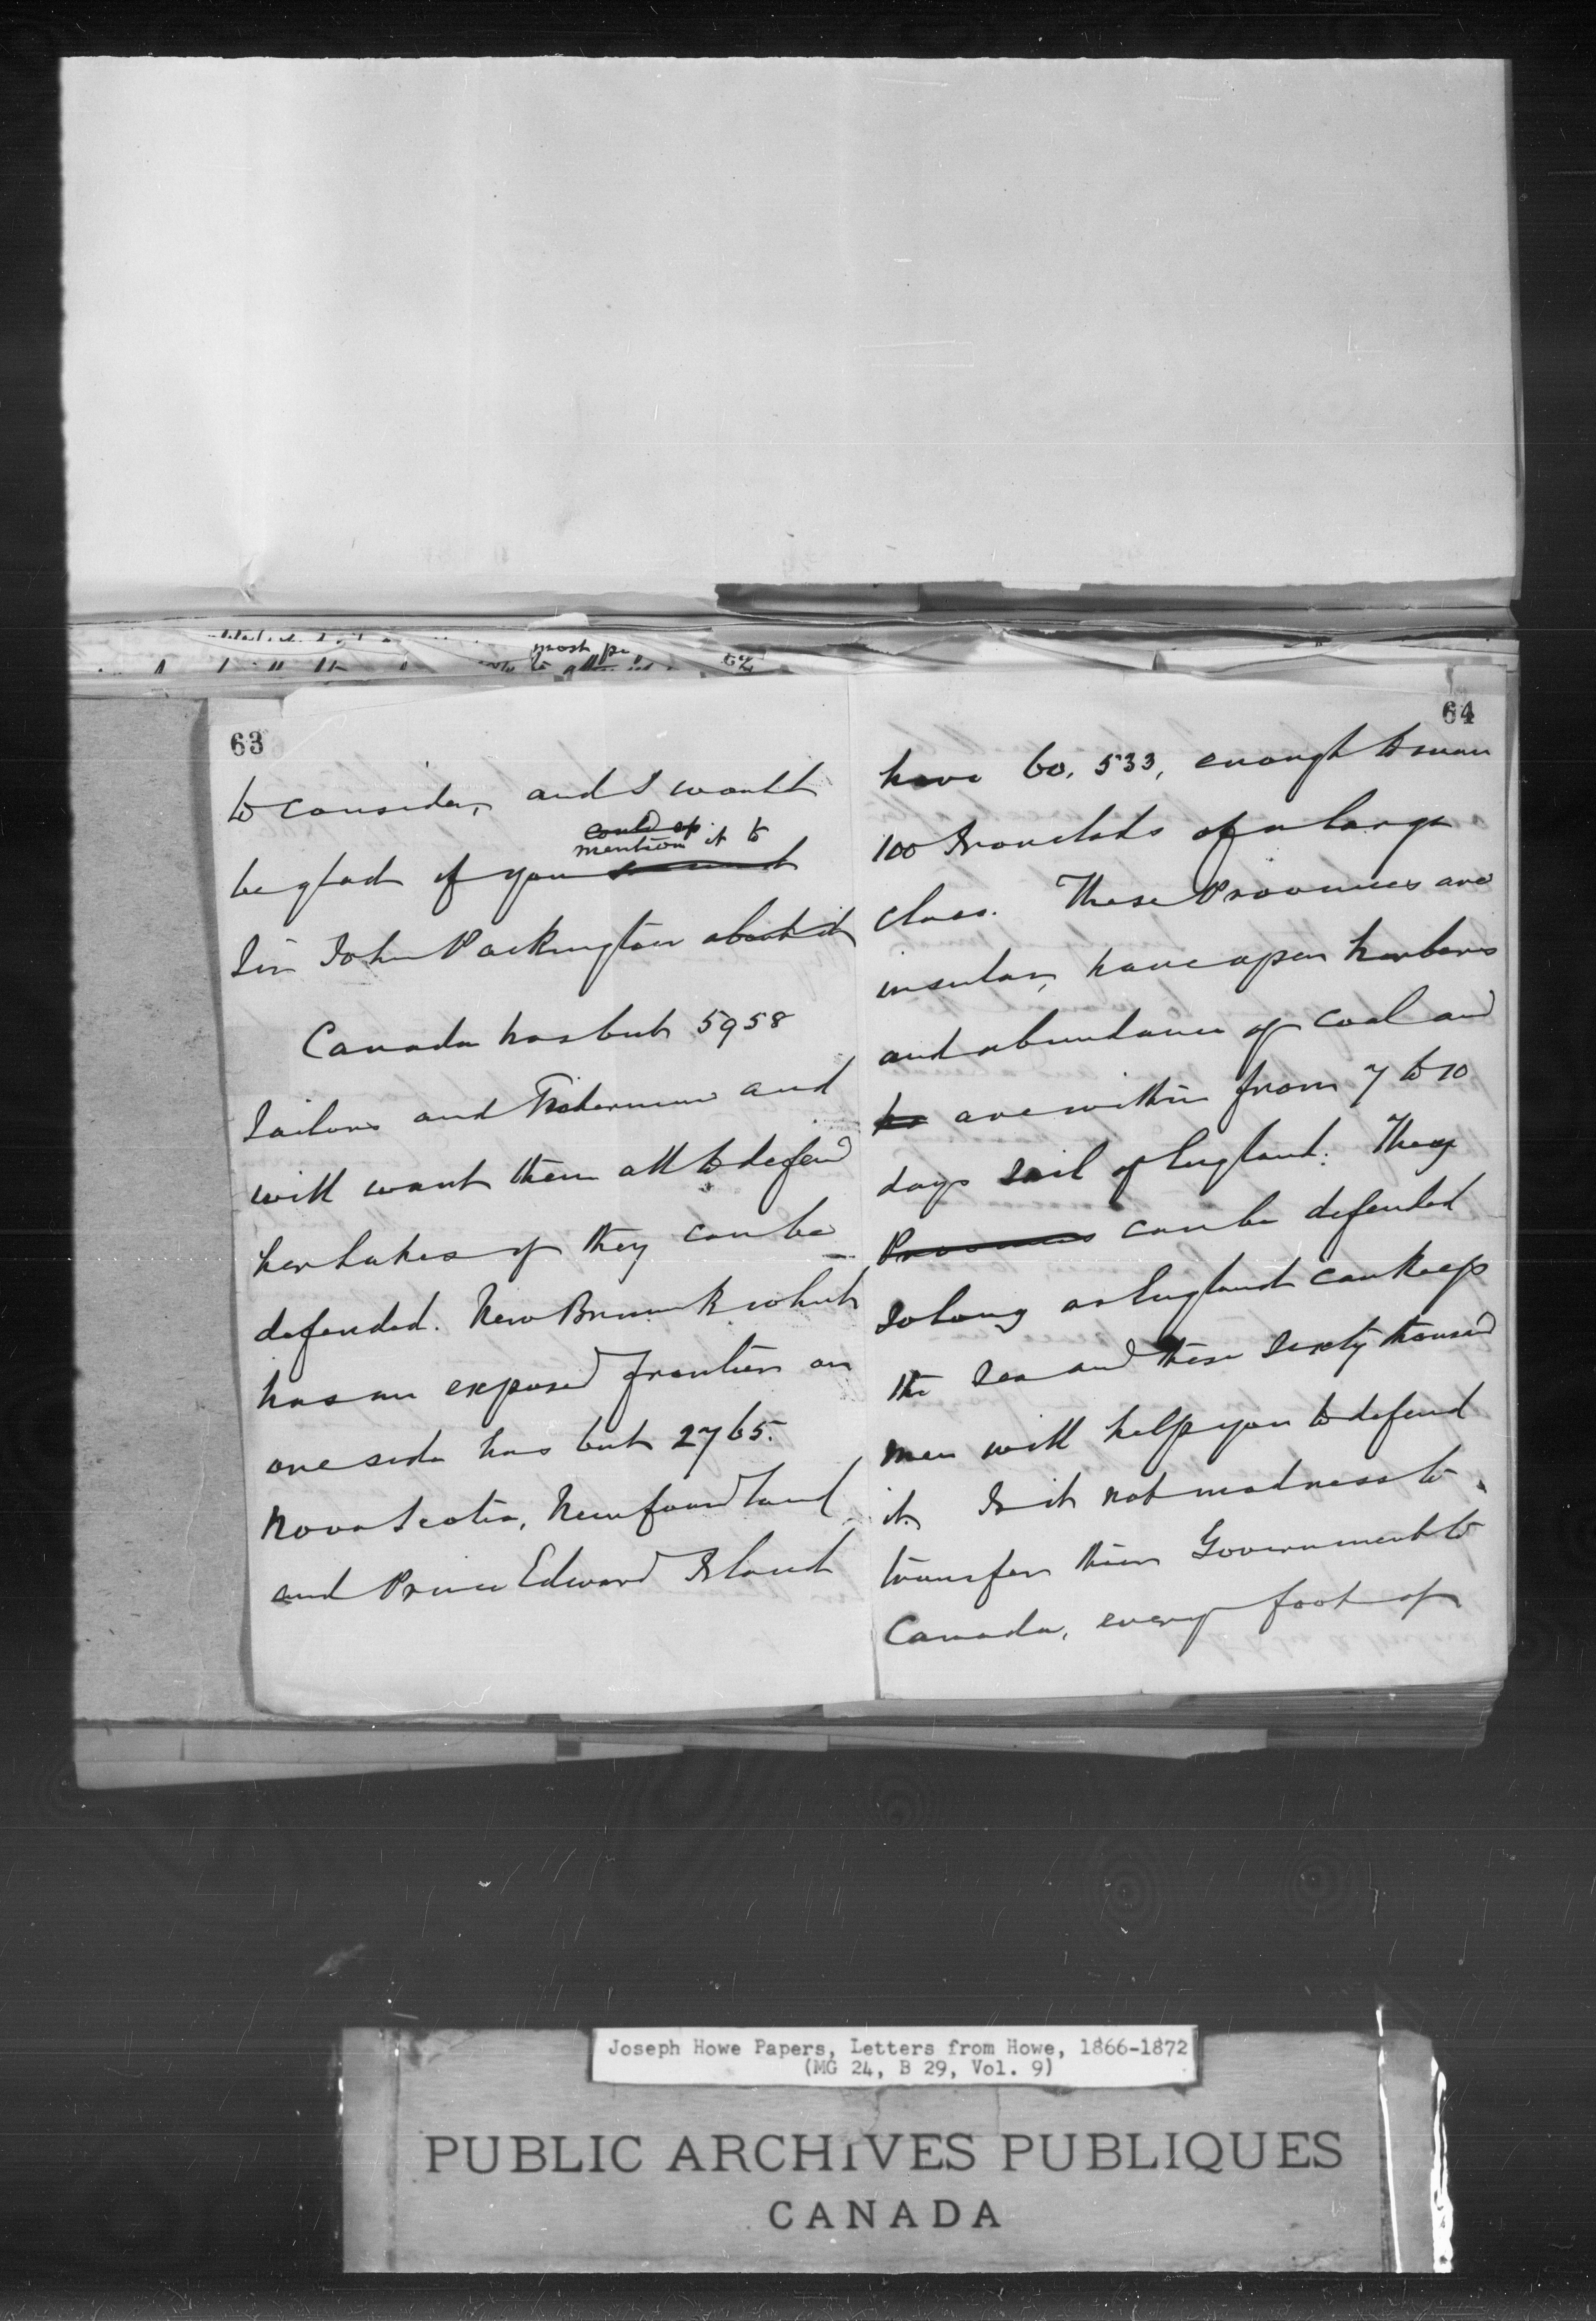 most
62
63
to consider, and I would
could sp
mention it to
be glad if you
Sir John Packington about it
Canada has but 5958
Sailors and Fishermen and
will want them all to defend
her Lakes if they can be
defended. New Brunswk which
has an exposed frontier on
one side has but 2765.
Nova Scotia, Newfoundland
and Prince Edward Island
64
have 60,533, enough to man
100 Ironclads of a large
class. These Provinces are
insular, have open harbors
and abundance of coal and
are within from 7 to 10
days sail of England. They
Provinces can be defended
so long as England can keep
the sea and these sixty thousand
men will help you to defend
it. Is it not madness to
transfer their Government to
Canada, every foot of
Joseph Howe Papers, Letters from Howe, 1866-1872
(MG 24, B 29, Vol. 9)
PUBLIC ARCHIVES PUBLIQUES
CANADA